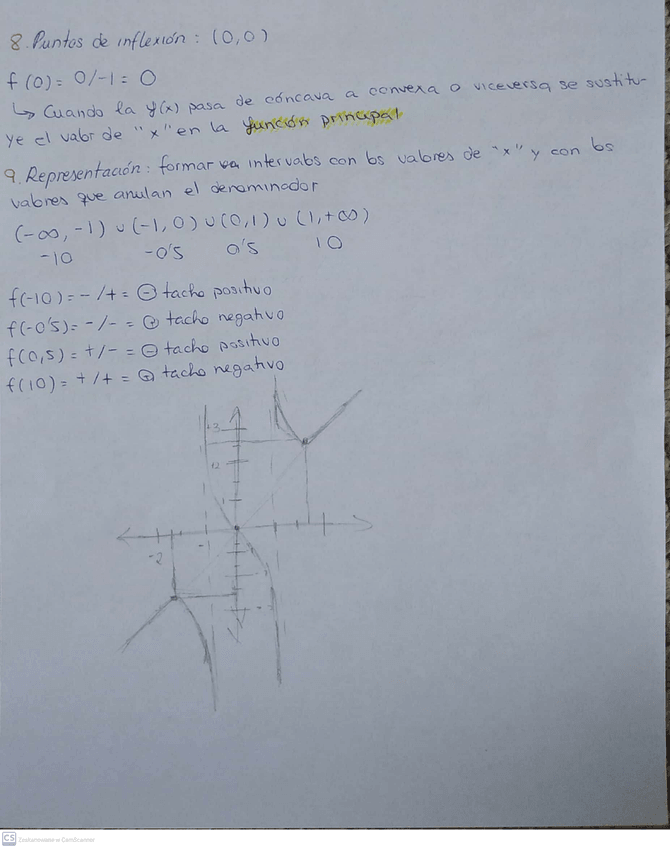 8. Puntos de inflexión: (0,0)
f(0) = 0/-1 = 0
↳ Cuando la f(x) pasa de cóncava a convexa o viceversa se sustitu-
ye el valor de "x" en la función principal
9. Representación: formar intervalos con los valores de "x" y con los
valores que anulan el denominador
(-∞, -1) ∪ (-1, 0) ∪ (0,1) ∪ (1,+∞)
-10 -0'5 0'5 10
f(-10) = -/+ = ⊖ tacho positivo
f(-0'5) = -/- = ⊕ tacho negativo
f(0,5) = +/- = ⊖ tacho positivo
f(10) = +/+ = ⊕ tacho negativo
3
2
-2 -1
CS Zeskanowane w CamScanner